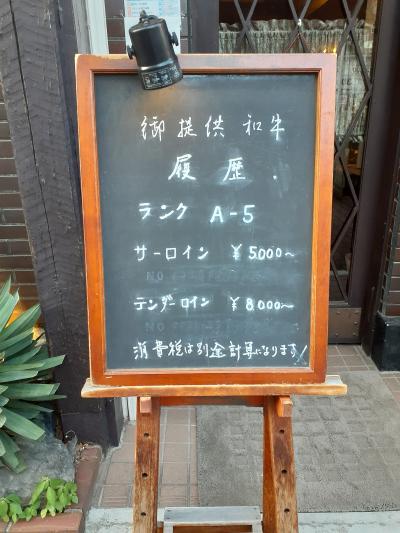 御提供 和牛
履歴.
ランク A-5
サーロイン ¥5000~
NO
テンダーロイン ¥8,000~
NO
消費税は別途計算になります!